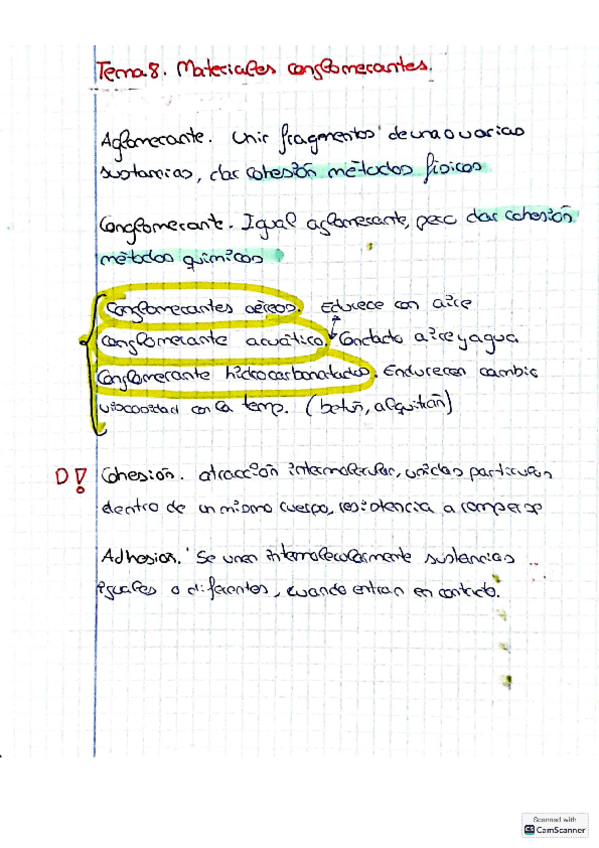 Tema 8. Materiales conglomerantes.
Aglomerante. Unir fragmentos de una o varias
sustancias, dar cohesión métodos físicos
Conglomerante. Igual aglomerante, pero dar cohesión
métodos químicos
Conglomerantes aéreos. Edurece con aire
Conglomerante acuático. Condado aire y agua
Conglomerante hidrocarbonatados. Endurecen cambio
viscosidad con la temp. (betún, alquitrán)
D! Cohesión. atracción intermolecular, unidas partículas
dentro de un mismo cuerpo, resistencia a romperse
Adhesion. Se unen intermolecularmente sustancias
iguales o diferentes, cuando entran en contacto.
Scanned with
CS CamScanner